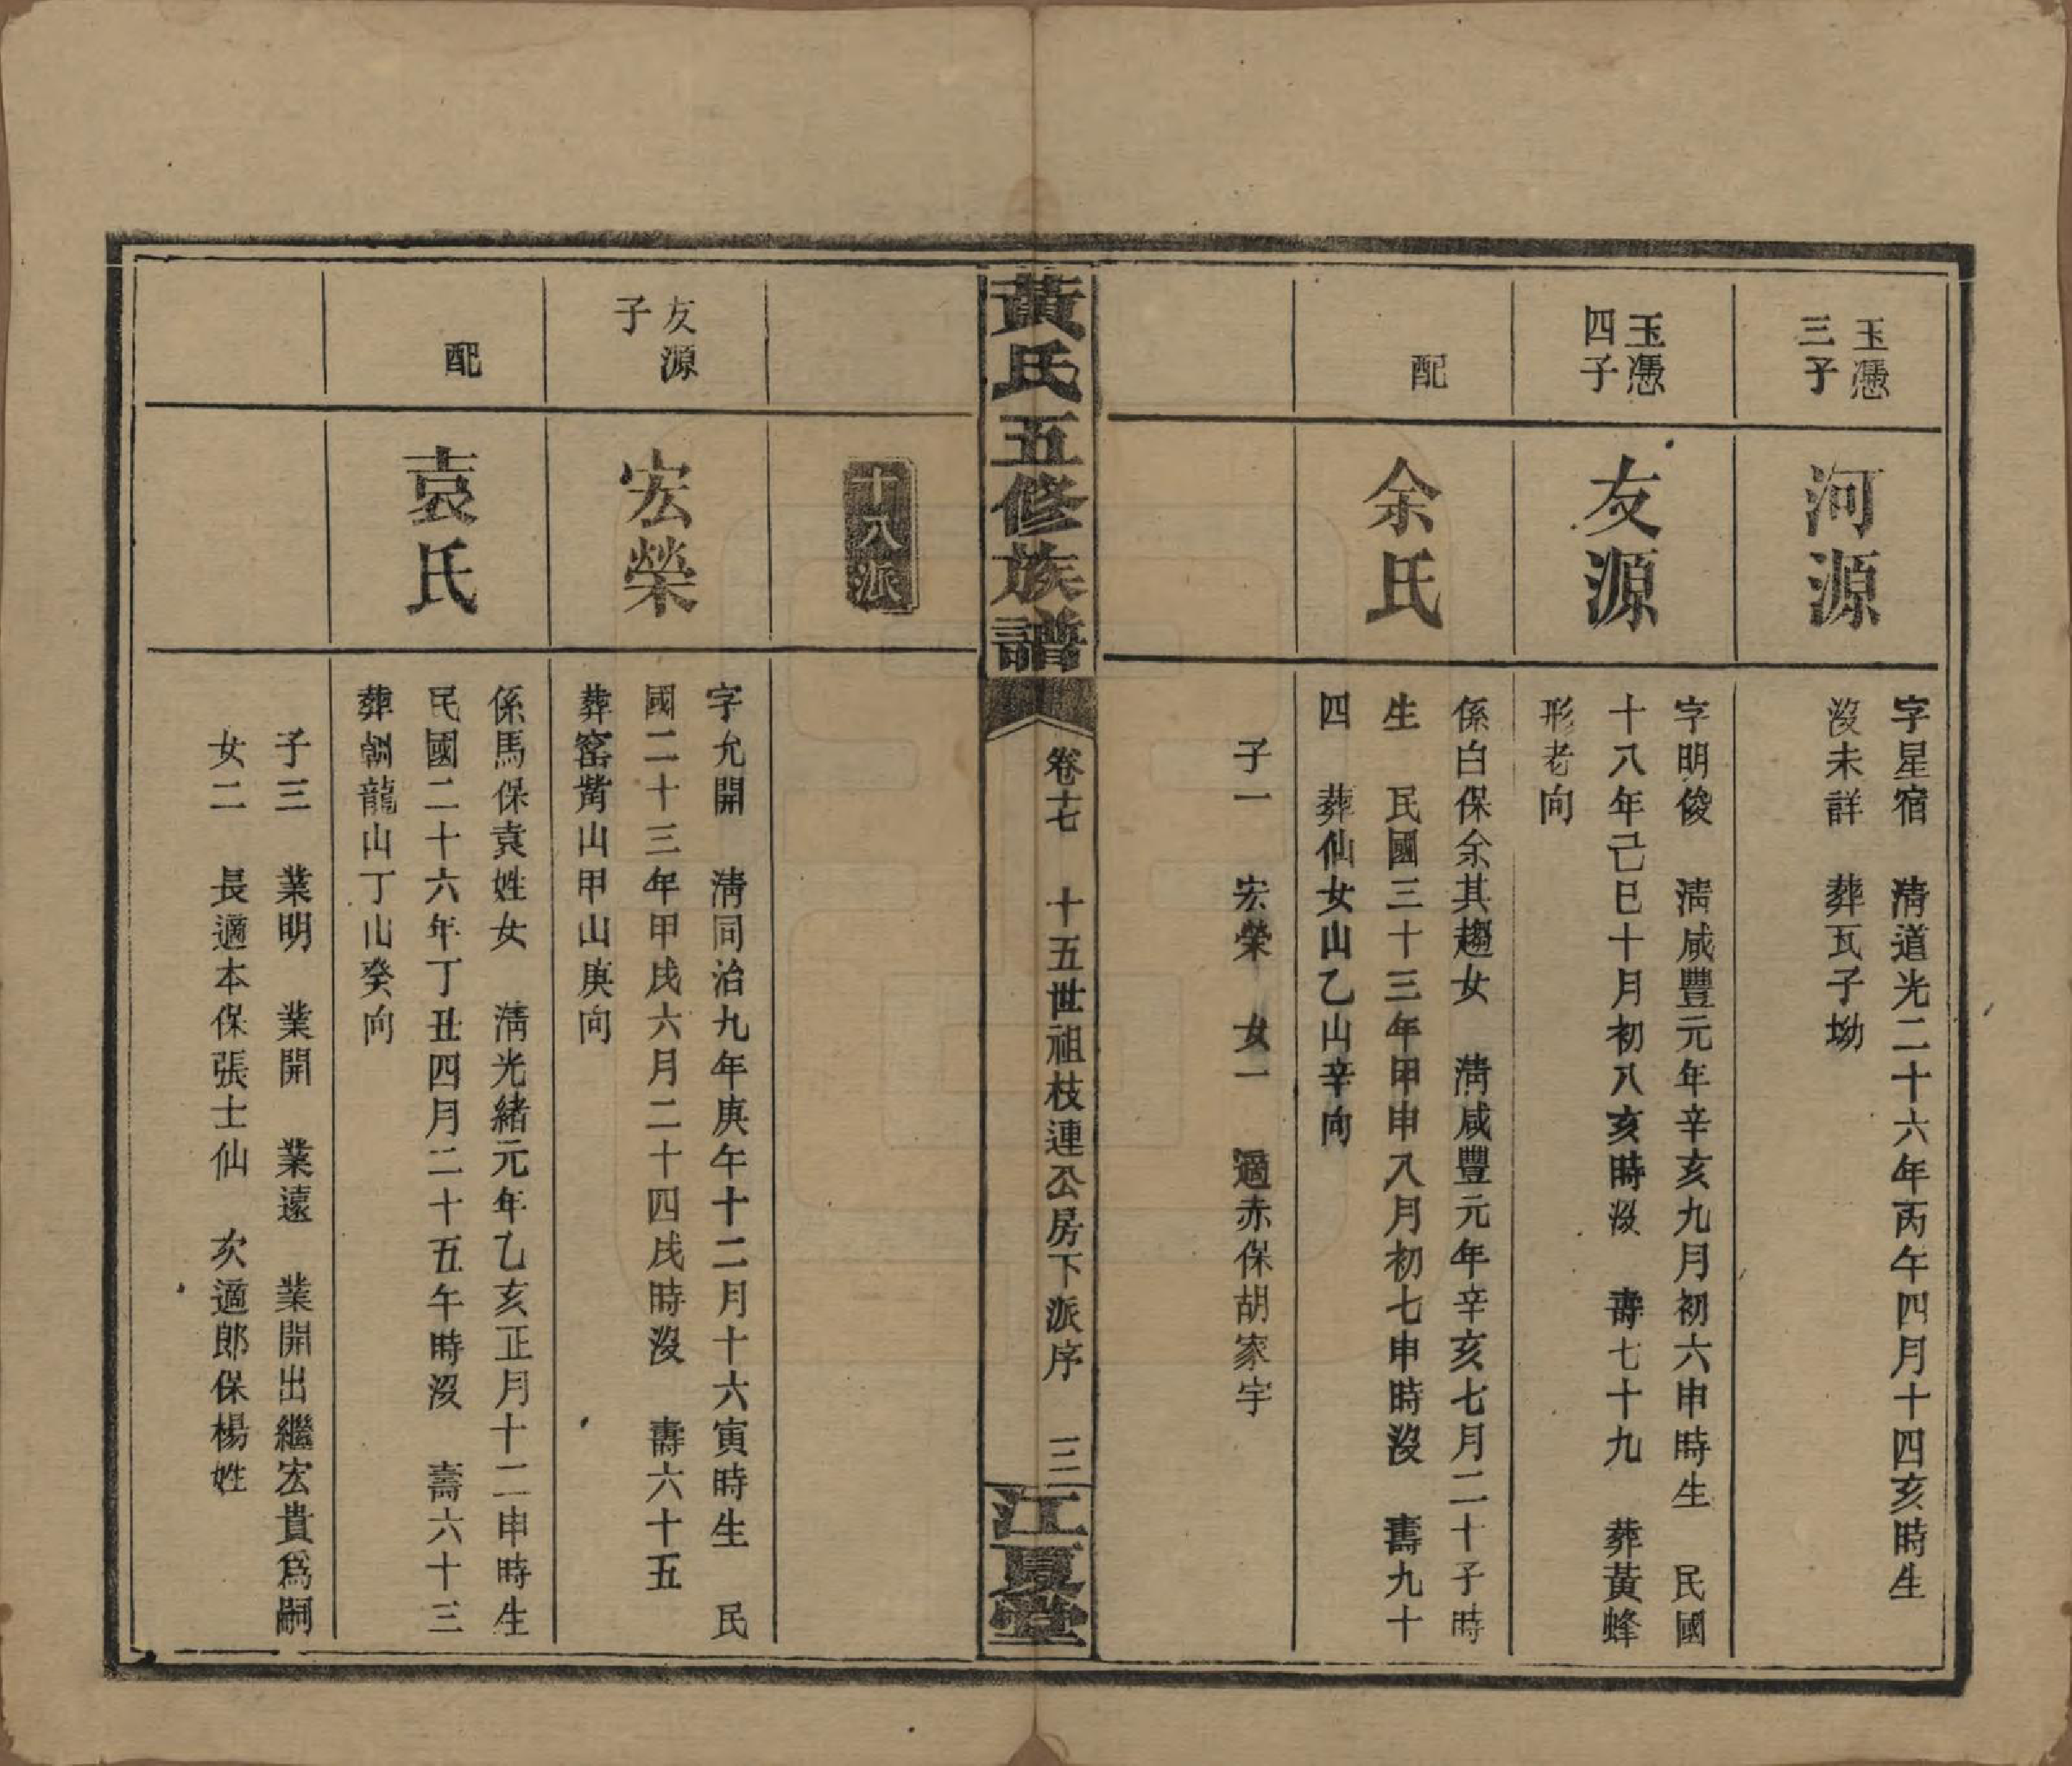 玉憑
三子
河源
字星宿　淸道光二十六年丙午四月十四亥時生
沒未詳　葬瓦子坳
玉憑
四子
友源
字明俊　淸咸豐元年辛亥九月初六申時生　民國
十八年己巳十月初八亥時沒　壽七十九　葬黃蜂
形老向
配
余氏
係白保余其趨女　淸咸豐元年辛亥七月二十子時
生　民國三十三年甲申八月初七申時沒　壽九十
四　葬仙女山乙山辛向
子一　宏榮　女一　適赤保胡家宇
黃氏五修族譜
卷十七　十五世祖枝連公房下派序　三
江夏堂
十八派
友源
子
宏榮
字允開　淸同治九年庚午十二月十六寅時生　民
國二十三年甲戌六月二十四戌時沒　壽六十五
葬窰嘴山甲山庚向
配
袁氏
係馬保袁姓女　淸光緒元年乙亥正月十二申時生
民國二十六年丁丑四月二十五午時沒　壽六十三
葬朝龍山丁山癸向
子三　業明　業開　業遠　業開出繼宏貴爲嗣
女二　長適本保張士仙　次適郎保楊姓